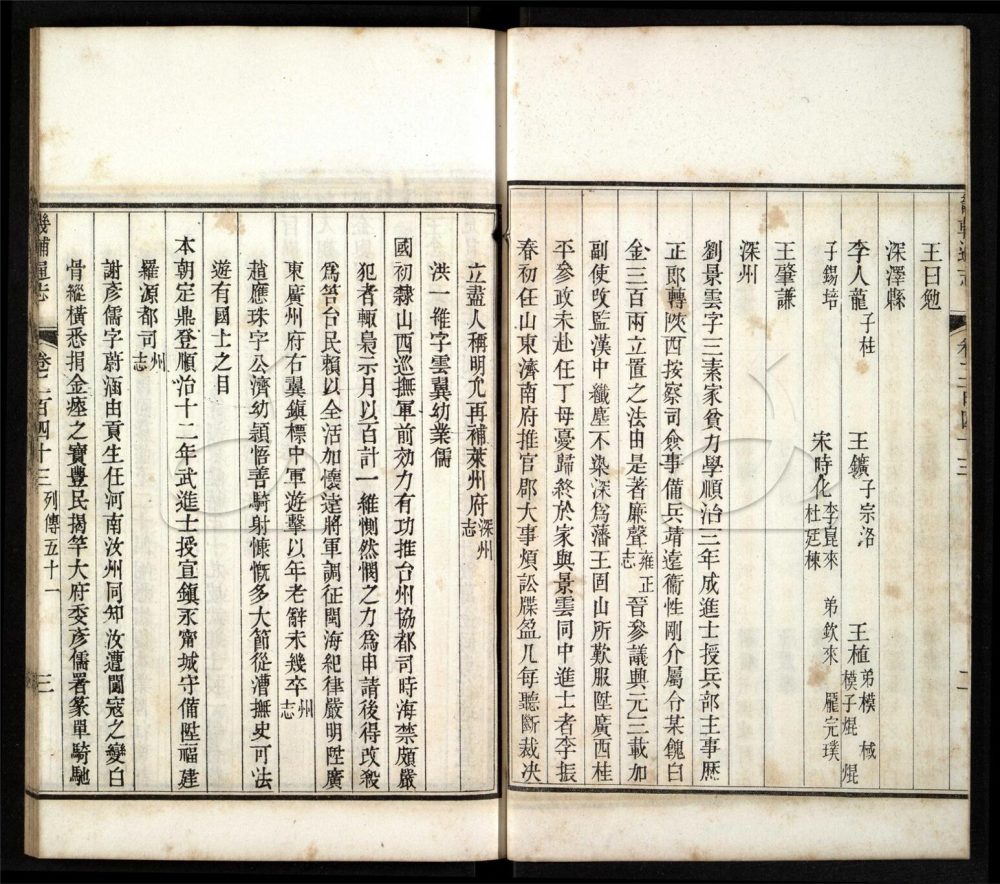 王曰勉
深澤縣
李人龍 子桂 王鑛 子宗洛 王植 弟模 棫 模子焜 焜
子錫培 宋時化 李崑來 杜廷棟 弟欽來 龎完璞
王肇謙
深州
劉景雲字三素家貧力學順治三年成進士授兵部主事歷
正郎轉陜西按察司僉事備兵靖遠衞性剛介屬令某餽白
金三百兩立置之法由是著廉聲 雍正志 晉參議興元三載加
副使改監漢中纖塵不染深爲藩王固山所歎服陞廣西桂
平參政未赴任丁母憂歸終於家與景雲同中進士者李振
春初任山東濟南府推官郡大事煩訟牒盈几每聽斷裁决
立盡人稱明允再補萊州府 深州志
洪一維字雲翼幼業儒
國初隸山西巡撫軍前効力有功推台州協都司時海禁頗嚴
犯者輒梟示月以百計一維惻然憫之力爲申請後得改殺
爲笞台民賴以全活加懷遠將軍調征閩海紀律嚴明陞廣
東廣州府右翼鎮標中軍遊擊以年老辭未幾卒 州志
趙應珠字公濟幼頴悟善騎射慷慨多大節從漕撫史可法
遊有國士之目
本朝定鼎登順治十二年武進士授宣鎮永甯城守備陞福建
羅源都司 州志
謝彥儒字蔚涵由貢生任河南汝州同知汝遭闖寇之變白
骨縱橫悉捐金瘞之寶豐民揭竿大府委彥儒署篆單騎馳
畿輔通志 卷二百四十三 列傳五十一 三